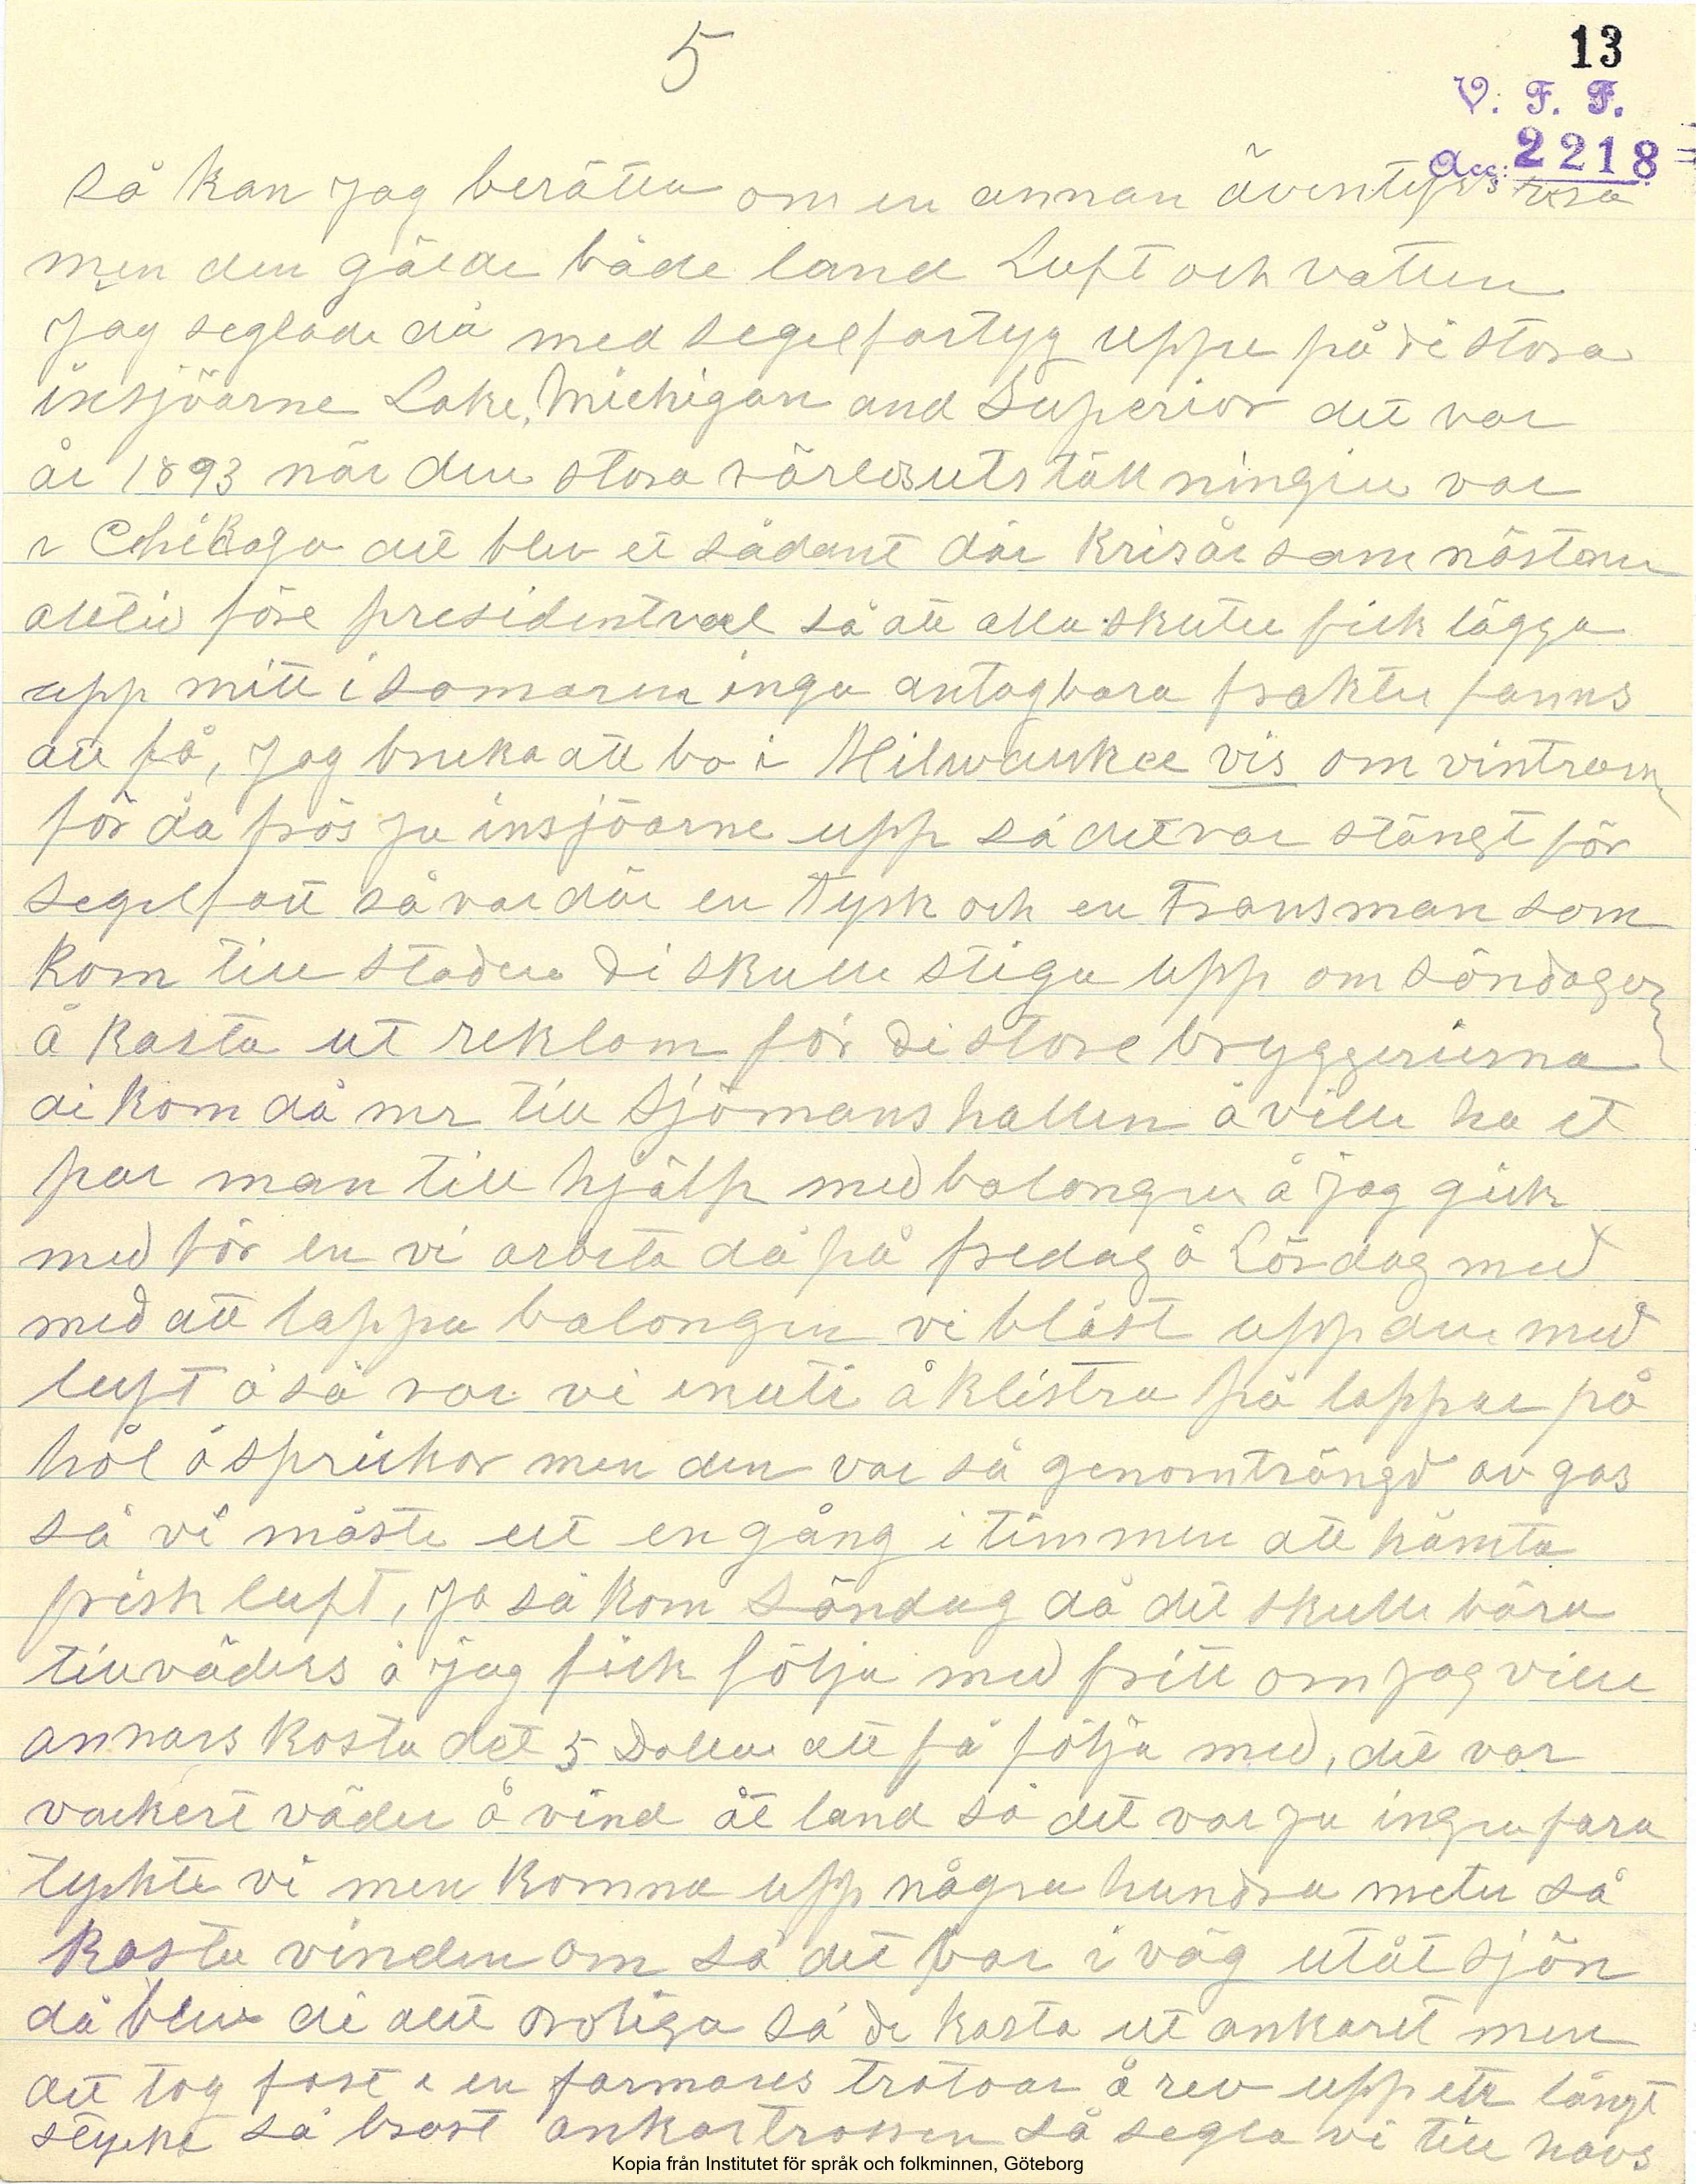 5
13
V. F. F.
Acc: 2218
så kan jag berätta om en annan äventyrs resa
men den gälde både land Luft och vatten
Jag seglade då med segelfartyg uppe på di stora
insjöarne Lake, Michigan and Superior det var
år 1893 när den stora världsutställningen var
i Chikago det blev et sådant där krisår som nästan
alltid före presidentval så att alla skutor fick lägga
upp mitt i somaren inga antagbara frakter fanns
att få, Jag bruka att bo i Milwaukee vis om vintrarna
för då frös ju insjöarne upp så det var stängt för
segelfart så var där en Tysk och en Fransman som
kom till staden di skulle stiga upp om söndagar
å kasta ut reklam för di store bryggerierna
di kom då ner till Sjömanshallen å ville ha et
par man till hjälp med balongen å jag gick
med för en vi arbeta då på fredag å Lördag med
med att lappa balongen vi blåst upp den med
luft å så var vi inuti å klistra på lappar på
hål å sprickor men den var så genomträngd av gas
så vi måste ut en gång i timmen att hämta
frisk luft, ja så kom Söndag då det skulle bära
tillväders å jag fick följa med fritt om jag ville
annars kosta det 5 Dollar att få följa med, det var
vackert väder å vind åt land så det var ju ingen fara
tyckte vi men komna upp några hundra meter så
kasta vinden om så det bar i väg utåt sjön
då blev di allt oroliga så di kasta ut ankaret men
det tog fast i en farmares trotoar å rev upp ett långt
stycke så brast ankartrossen så segla vi till havs
Kopia från Institutet för språk och folkminnen, Göteborg